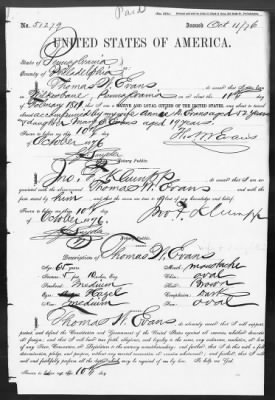 Paid
No. 51279
Issued Oct 11/76
UNITED STATES OF AMERICA.
State of Pennsylvania
County of Philadelphia
I, Thomas W. Evans, do swear that I was born
in Pennsylvania on or about the 11th day of
February 1811, that I am a NATIVE AND LOYAL CITIZEN OF THE UNITED STATES, and about to travel
abroad accompanied by my wife aged 52 years
& daughter Mary aged 19 years
Thos W Evans
Sworn to before me, this 10th day
of October 1876
Notary Public.
I, Jno. F. Klumpp, do swear that I am ac-
quainted with the above named Thomas W. Evans and that the
facts stated by him are true to the best of my knowledge and belief.
Jno F Klumpp
Sworn to before me, this 10th day
of October 1876
Notary Public.
Description of Thomas W. Evans
Age: 65 years
Mouth: moustache
Stature: 5 feet 10 inches, Eng.
Chin: oval
Forehead: medium
Hair: Brown
Eyes: Hazel
Complexion: Dark
Nose: medium
Face: oval
I, Thomas W. Evans, do solemnly swear that I will support,
protect and defend the Constitution and Government of the United States against all enemies, whether domestic
or foreign; and that I will bear true faith, allegiance, and loyalty to the same, any ordinance, resolution, or law
of any State, Convention, or Legislature to the contrary notwithstanding; and further, that I do this with a full
determination, pledge, and purpose, without any mental reservation or evasion whatsoever; and further, that I will
well and faithfully perform all the duties which may be required of me by law. So help me God.
Sworn to before me, this 10th day